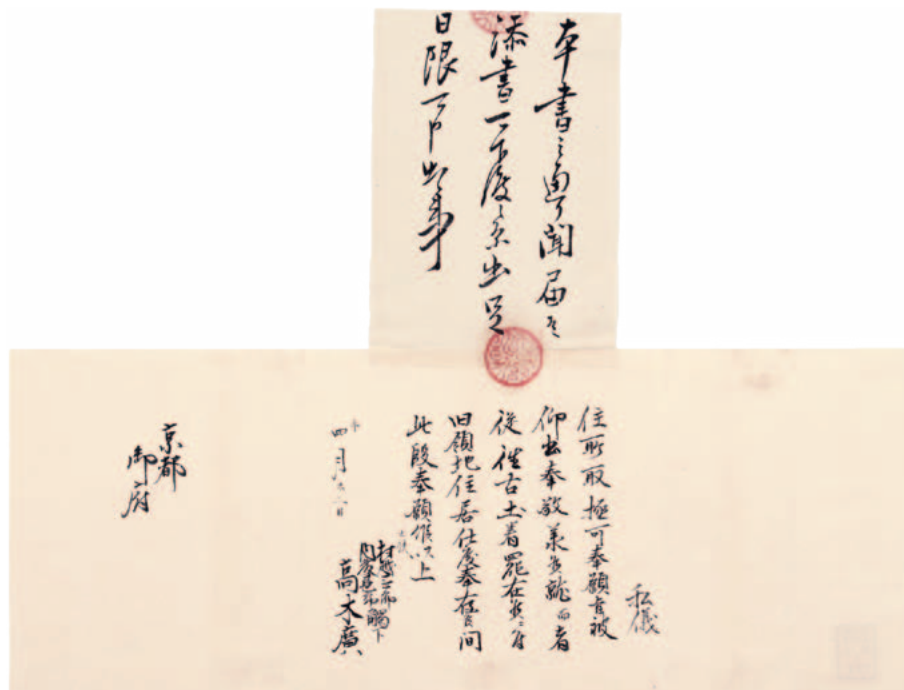 本書之通り聞届候
添書可下渡候条出足
日限可申出事
私儀
住所取極可奉願旨被
仰出奉敬承候就而者
従往古土着罷在候ニ付
旧領地住居仕度奉存候間
此段奉願候以上
四月 日
触下
高木廣
京都
御府